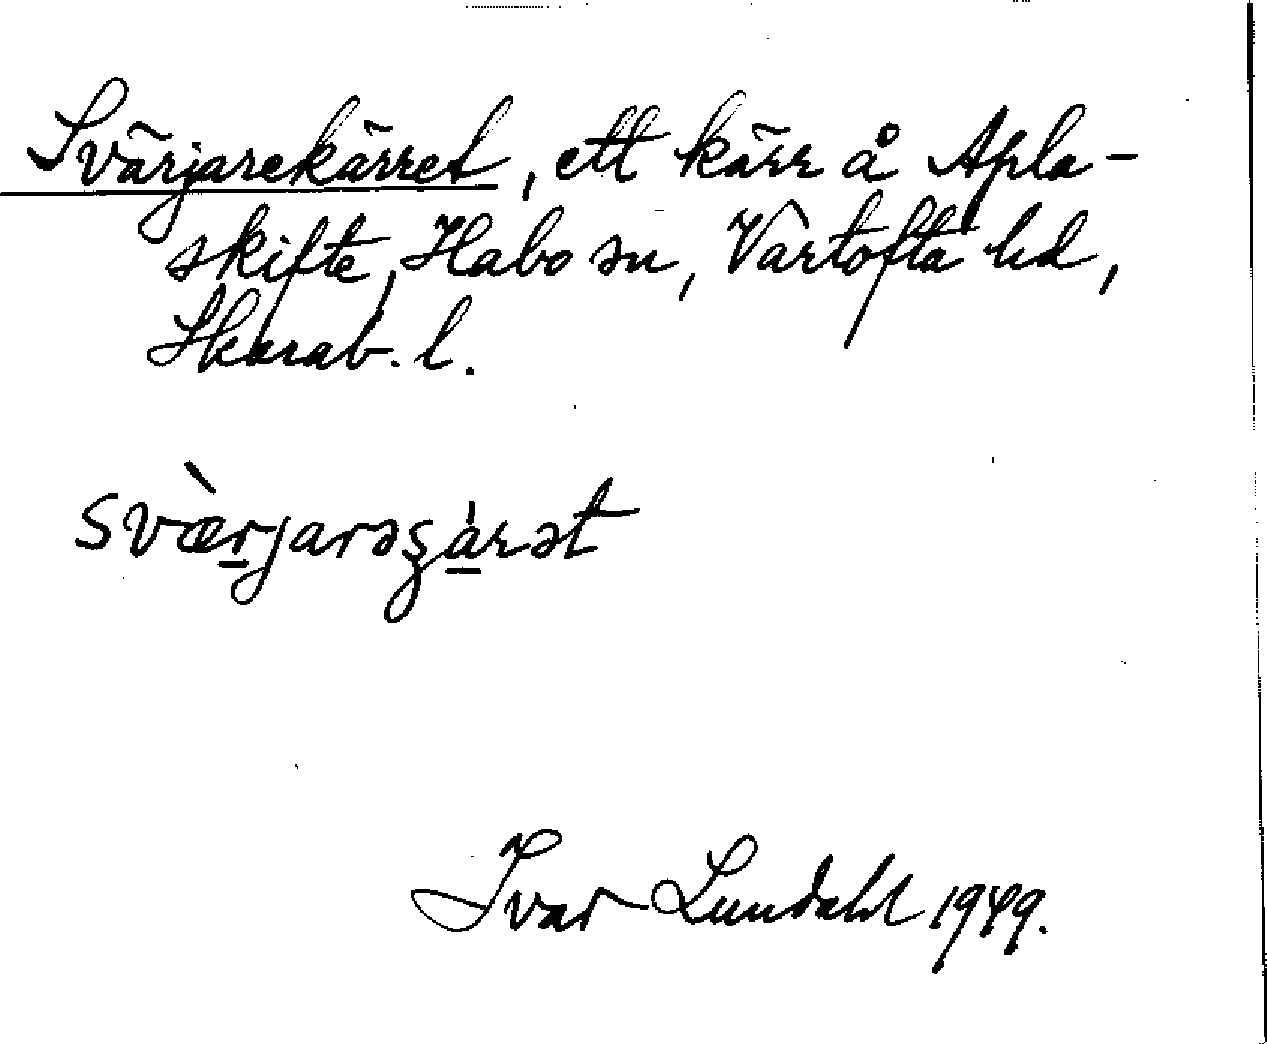 Svärjarekärret, ett kärr å Apla-
skifte, Habo sn, Vartofta hd,
Skarab. l.
svæ̀r̲jarəʂa̲̍rət
Ivar Lundahl 1949.